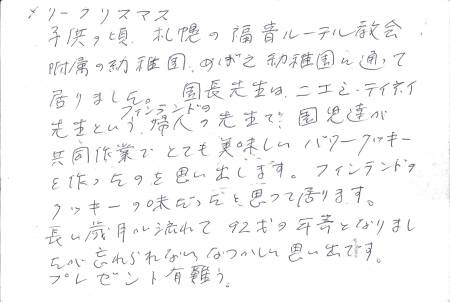 メリークリスマス
子供の頃、札幌の福音ルーテル教会
附属の幼稚園、めばえ幼稚園に通って
居りました。園長先生は、ニエミ・
フィンランドの
先生という、婦人の先生で、園児達が
共同作業でとても美味しいバタークッキー
を作ったのを思い出します。フィンランドの
クッキーの味だったと思って居ります。
長い歳月が流れて92才の年寄となりまし
たが忘れられない、なつかしい思い出です。
プレゼント有難う。